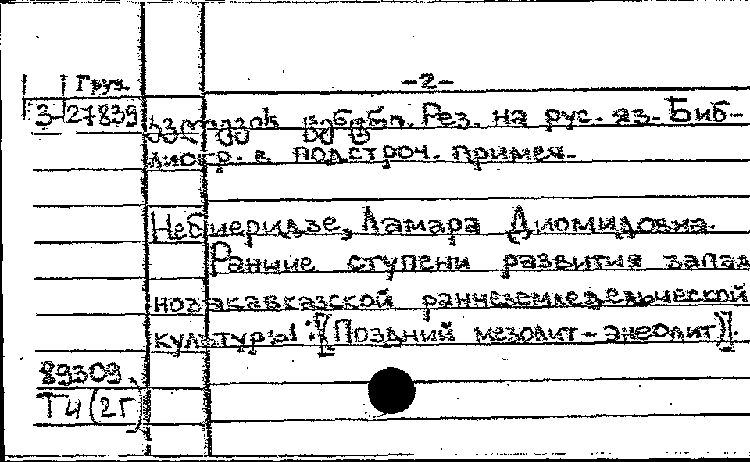 -2-
Груз.
3-27839
Рез. на рус. яз. Биб-
лиогр. в подстроч. примеч.
Небиеридзе, Ламара Диомидовна.
Ранние ступени развития запад
нозакавказской раннеземледельческой
культуры: [(Поздний мезолит - энеолит)].
89309
ТИ (2Г)